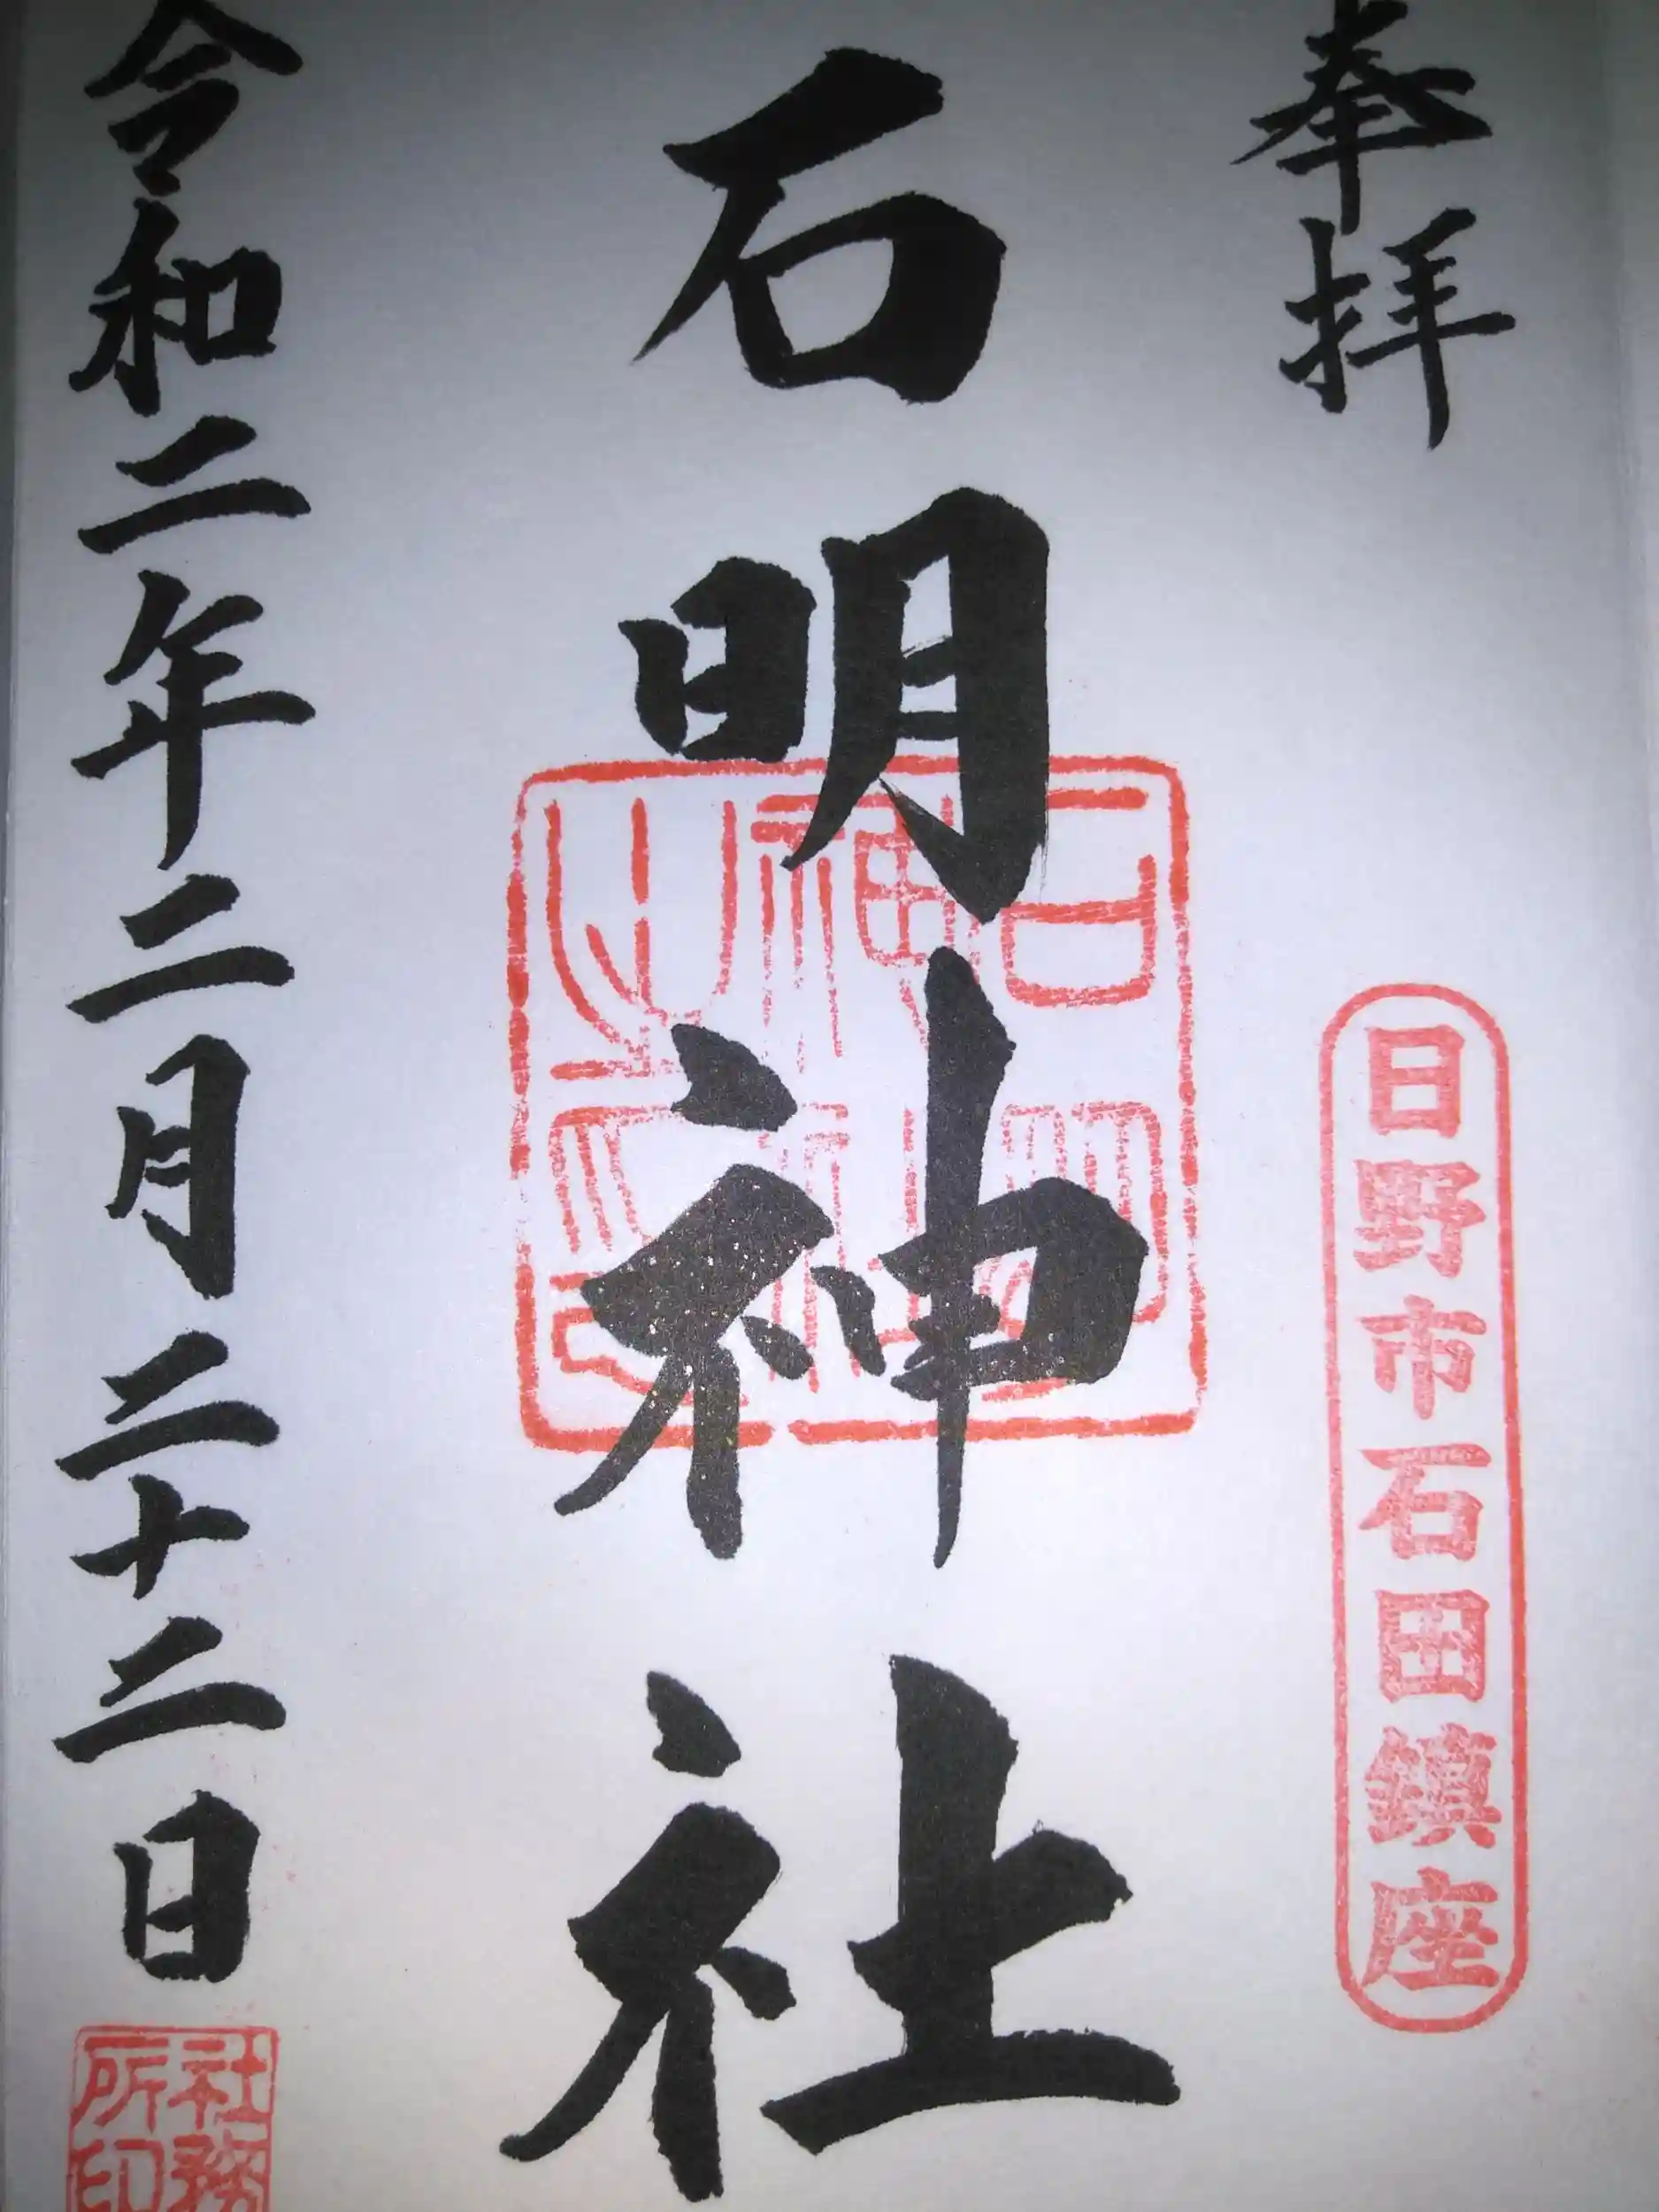 奉拝
日野市石田鎮座
石明神社
石明神社之印
令和二年二月二十二日
社務所印